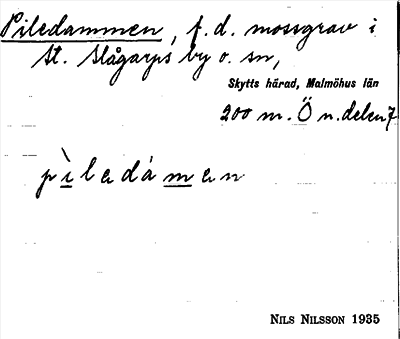 Piledammen, f.d. mossgrav i
St. Slågarps by o. sn,
Skytts härad, Malmöhus län
200 m. Ö n. delen 7
pìledámen
NILS NILSSON 1935